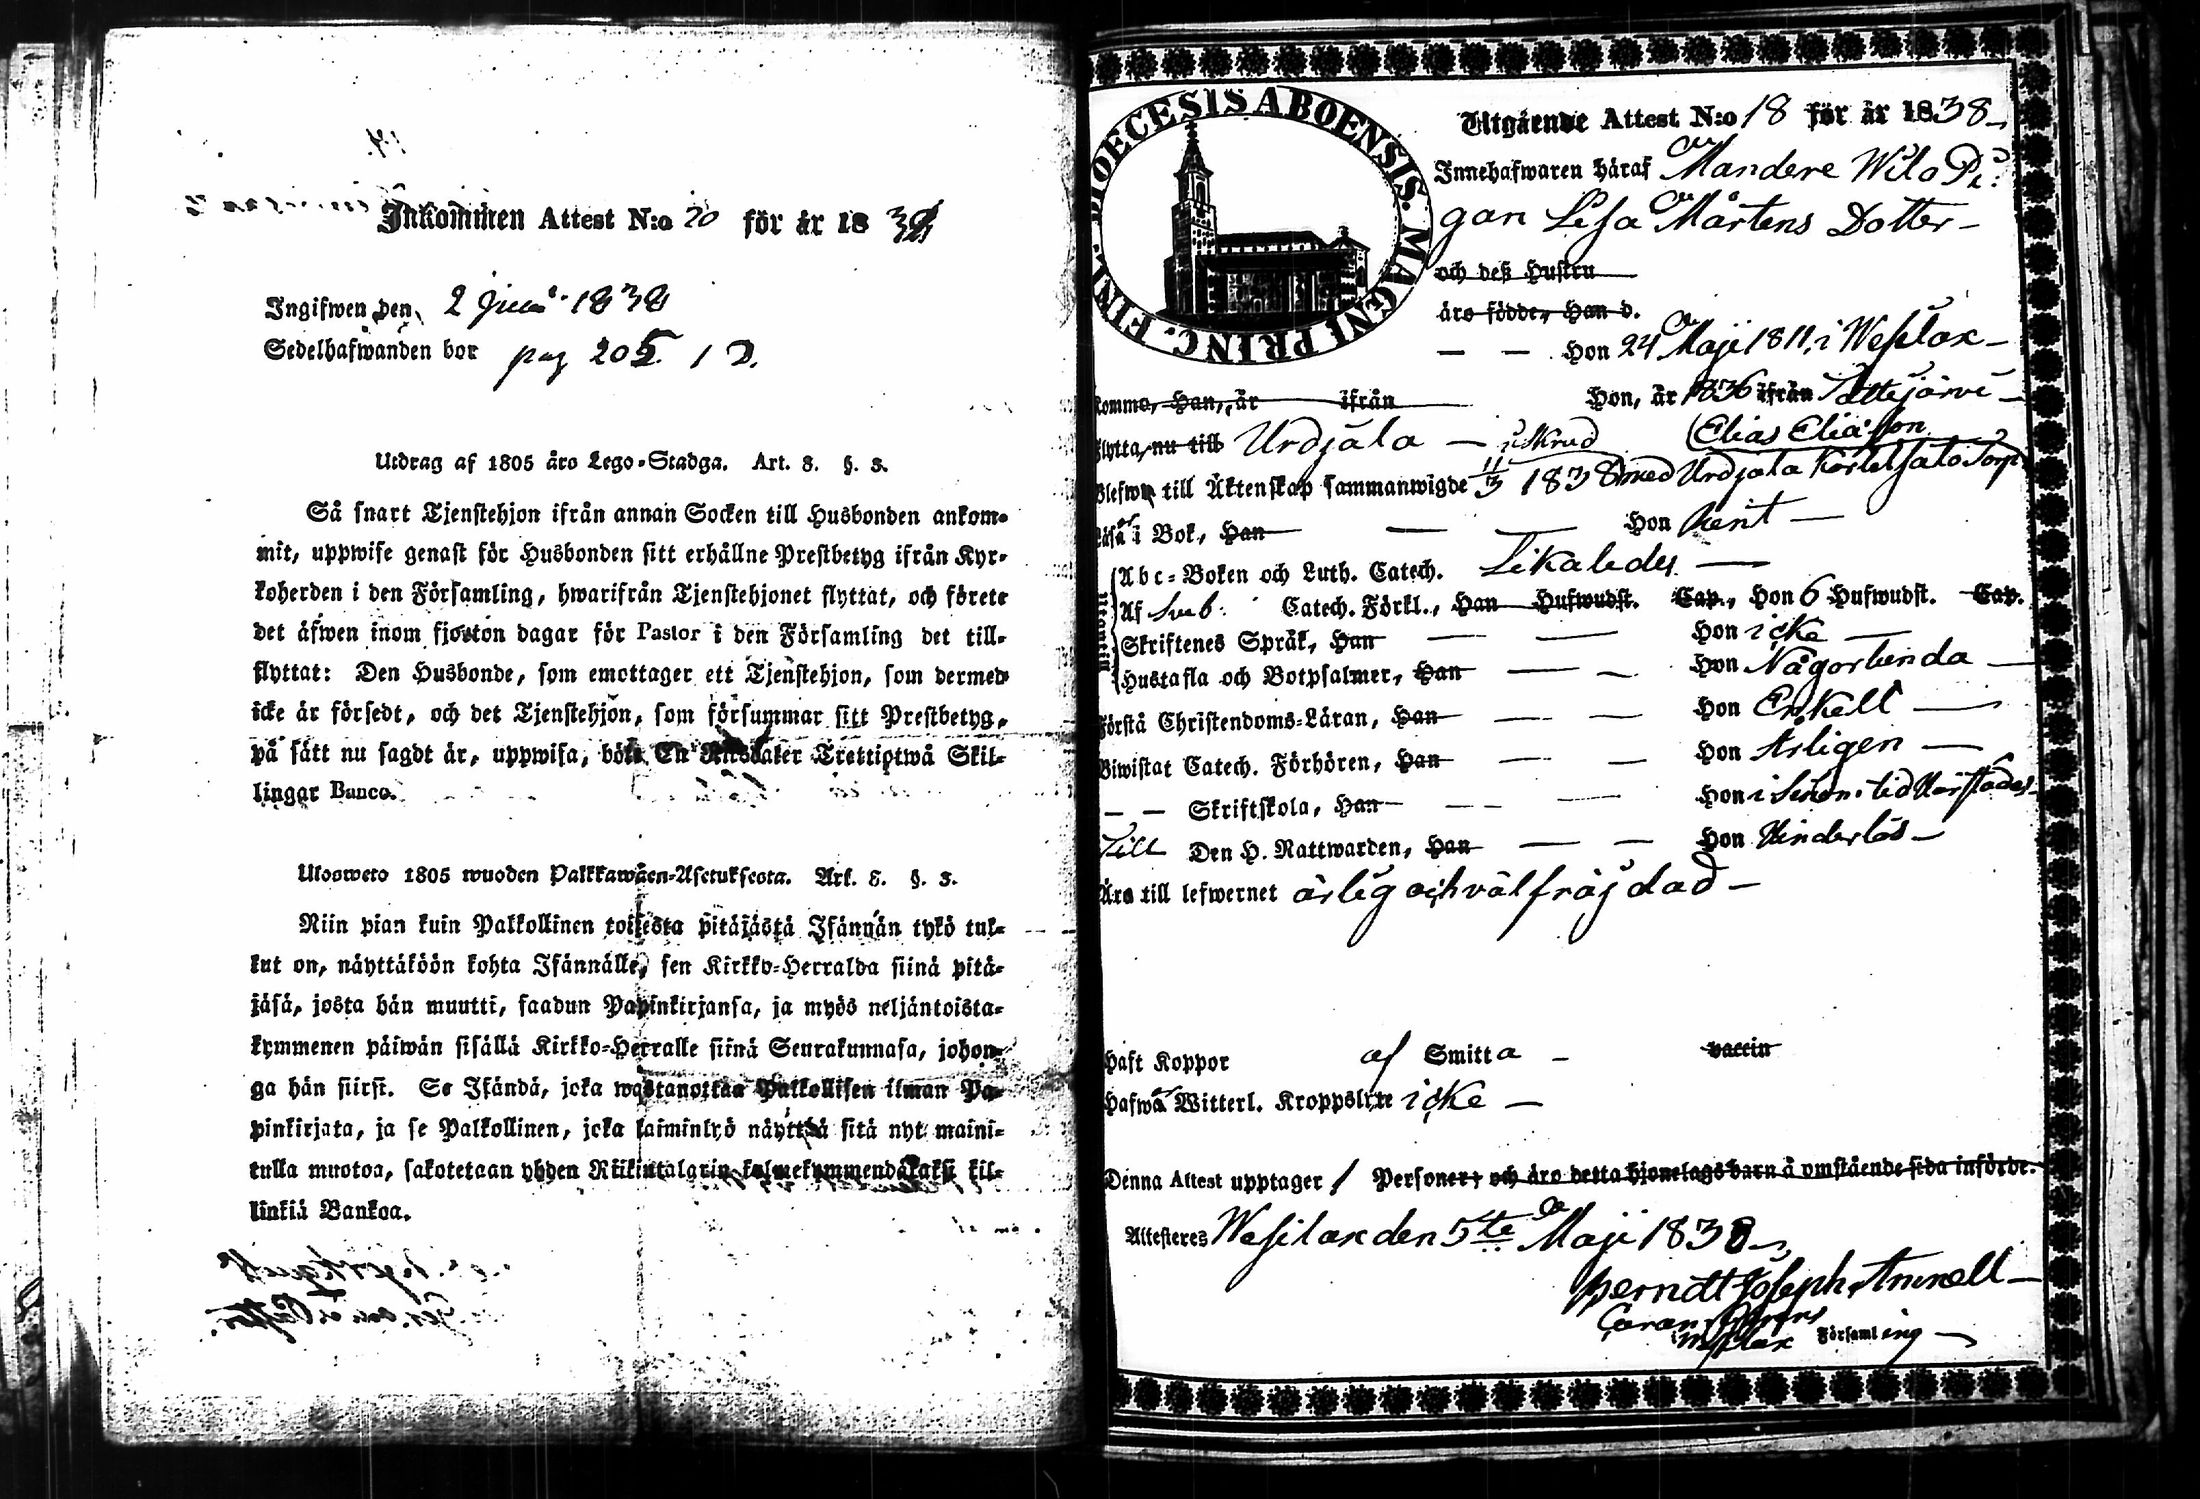 Inkommen Attest N:o 20 för år 1838
Ingifwen den 2 Juni 1838
Sedelhafwanden bor pag 205. 12.
Utdrag af 1805 åro Lego-Stadga. Art. 8. §. 3.
Så snart Tjenstehjon ifrån annan Socken till Husbonden ankom-
mit, uppwise genast för Husbonden sitt erhållne Prestbetyg ifrån Kyr-
koherden i den Församling, hwarifrån Tjenstehjonet flyttat, och förete
det äfwen inom fjorton dagar för Pastor i den Församling det till-
flyttat: Den Husbonde, som emottager ett Tjenstehjon, som dermed
icke är försedt, och det Tjenstehjon, som försummar sitt Prestbetyg,
på sätt nu sagdt är, uppwisa, böte En Riksdaler Trettiotwå Skil-
lingar Banco.
Ulosweto 1805 wuoden Palkkawäen-Asetuksesta. Art. 8. §. 3.
Niin pian kuin Palkollinen toisesta pitäjästä Isännän tykö tul-
lut on, näyttäköön kohta Isännälle, sen Kirkko-Herralda siinä pitä-
jäsä, josta hän muutti, saadun Papinkirjansa, ja myös neljäntoista-
kymmenen päiwän sisällä Kirkko-Herralle siinä Seurakunnasa, johon-
ga hän siirst. Se Isändä, joka wastanottaa Palkollisen ilman Pa-
pinkirjata, ja se Palkollinen, joka laiminlyö näyttää sitä nyt maini-
tulla muotoa, sakotetaan yhden Riikintalarin kolmekymmendäkaksi kil-
linkiä Bankoa.
DIOECESIS ABOENSIS. MAGNI PRINC. FINL.
Utgående Attest N:o 18 för år 1838
Innehafwaren häraf Mandere Wilo Pi:
gan Lisa Mårtens Dotter
och deß Hustru
äro födde, Han d.
Hon 24 Maji 1811, i Wesilax
komma, Han, år ifrån Hon, år 1836 ifrån
Flytta nu till Urdjala Elias Eliasson
Blefwo till Äktenskap sammanwigde 11/3 1838 med Urdjala Torp
Läsa i Bok, Han Hon rent
Abc-Boken och Luth. Catech. Likaledes
Af Sveb: Catech. Förkl., Han Hufwudst. Cap., Hon 6 Hufwudst. Cap.
Skriftenes Språk, Han Hon icke
Hustafla och Botpsalmer, Han Hon Någorlunda
Förstå Christendoms-Läran, Han Hon Enkelt
Biwistat Catech. Förhören, Han Hon Årligen
Skriftskola, Han Hon i sinom tid
Till Den H. Nattwarden, Han Hon Hinderlös
Äro till lefwernet ärlig och välfräjdad
Haft Koppor af Smitta vaccin
Hafwa Witterl. Kroppslyte icke
Denna Attest upptager 1 Personer; och äro detta hjonelags barn å omstående sida införde.
Attesteres Wesilax den 5te Maji 1838
Berndt Joseph Amnell
Wesilax Församling